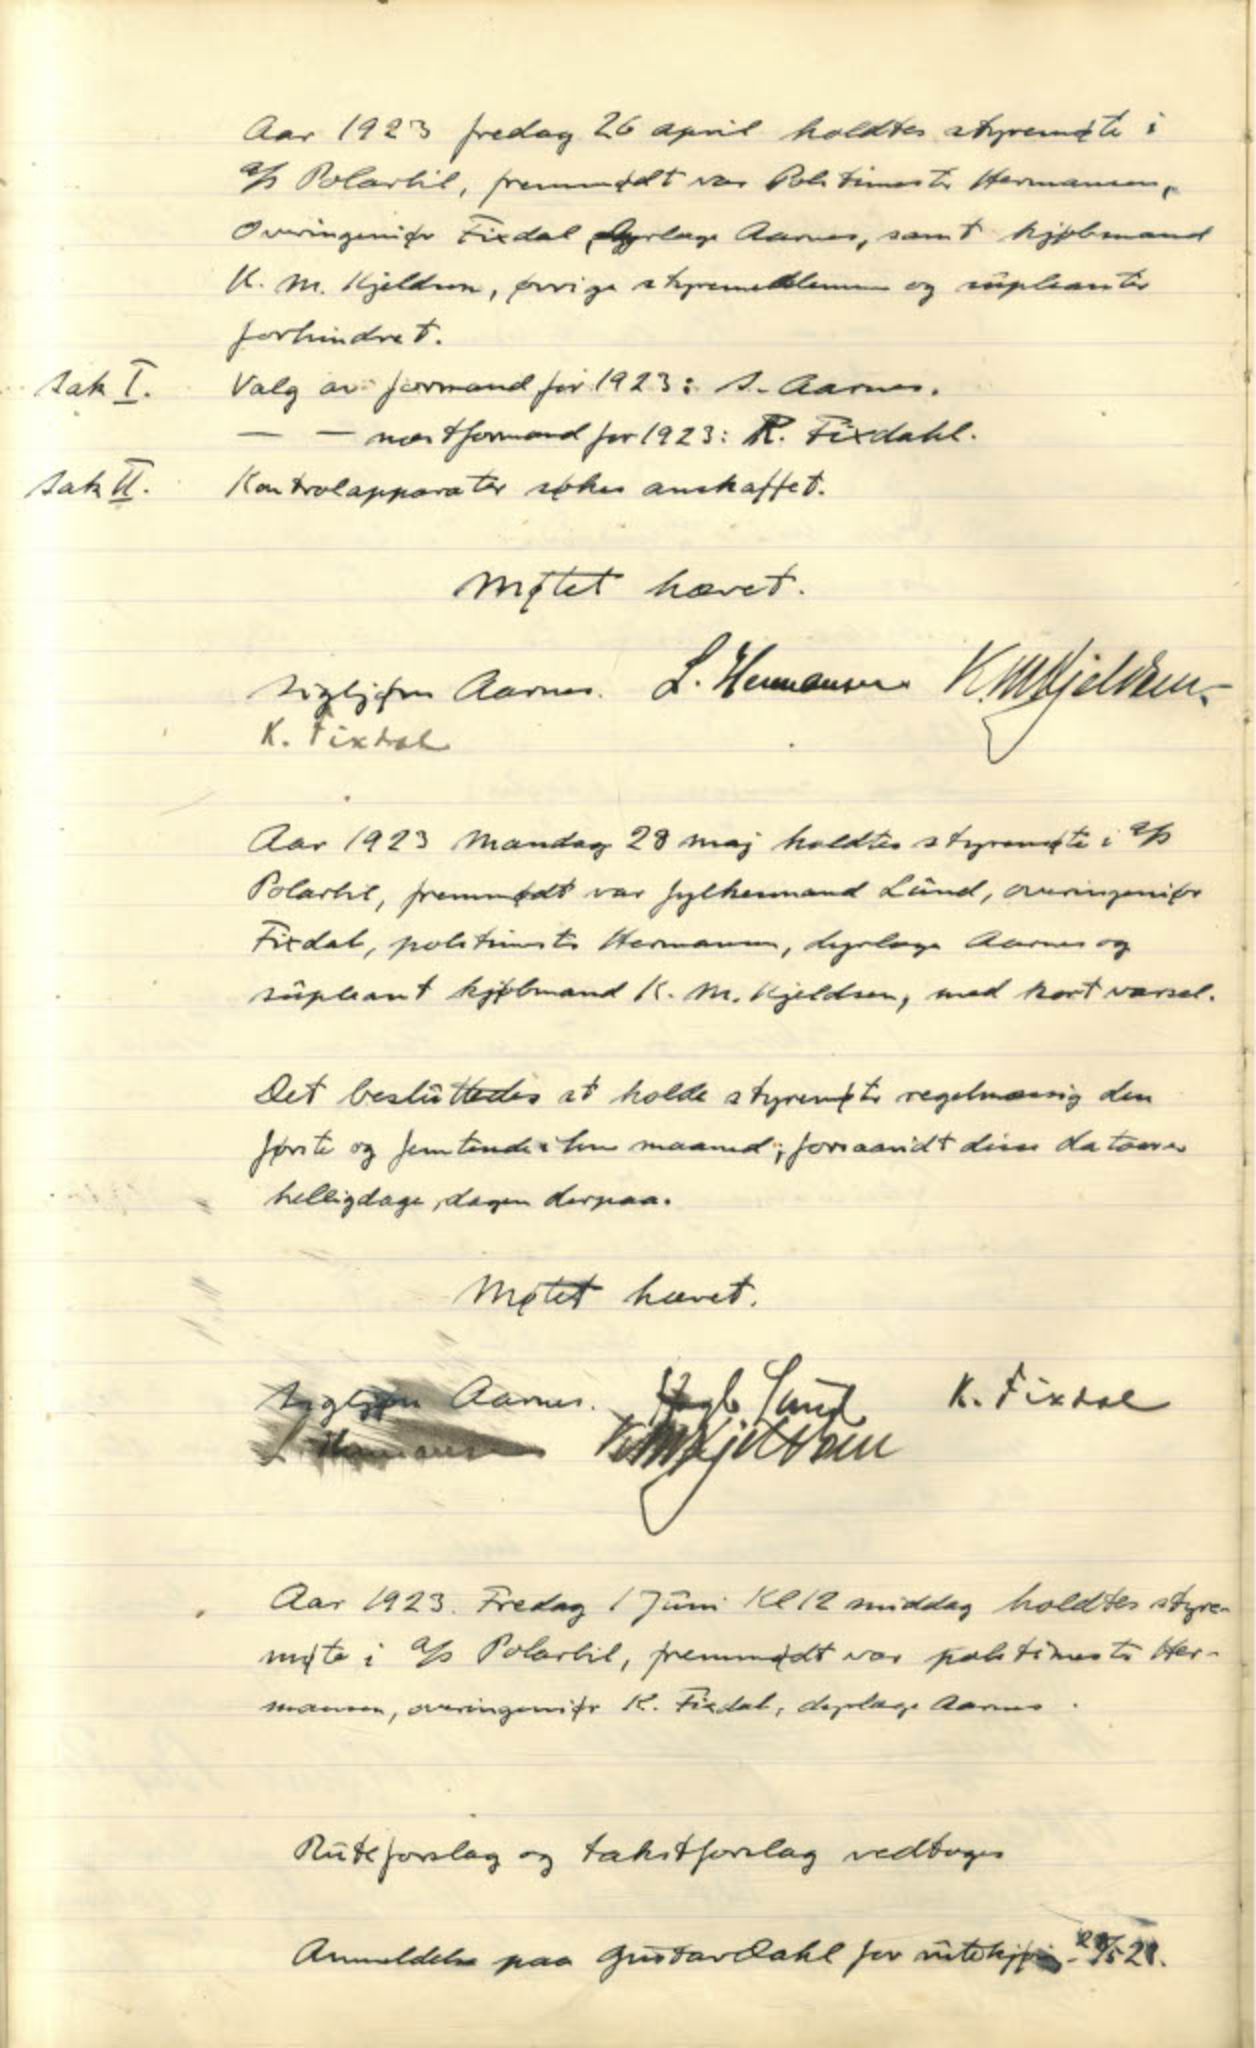 Aar 1923 fredag 26 april holdtes styremøte i
a/s Polarbil, fremmødt var Politimester Hermansen,
Overingeniør Fixdal, Dyrlæge Aarnes, samt kjøbmand
K. M. Kjeldsen, øvrige styremedlemmer og supleanter
forhindret.
Sak I. Valg av formand for 1923: S. Aarnes.
— — næstformand for 1923: K. Fixdahl.
Sak II. Kontrolapparater søkes anskaffet.
Møtet hævet.
Sigbjørn Aarnes. L. Hermansen K. M. Kjeldsen.
K. Fixdal
Aar 1923 Mandag 28 maj holdtes styremøte i a/s
Polarbil, fremmødt var fylkesmand Lund, overingeniør
Fixdal, politimester Hermansen, dyrlæge Aarnes og
supleant kjøbmand K. M. Kjeldsen, med kort varsel.
Det besluttedes at holde styremøter regelmæssig den
første og femtende i hver maaned; forsaavidt disse datoer er
helligdage, dagen derpaa.
Møtet hævet.
Sigbjørn Aarnes. Lund K. Fixdal
L. Hermansen K. M. Kjeldsen
Aar 1923. Fredag 1 Juni Kl 12 middag holdtes styre-
møte i a/s Polarbil, fremmødt var politimester Her-
mansen, overingeniør K. Fixdal, dyrlæge Aarnes.
Ruteforslag og takstforslag vedtoges
Anmeldelse paa Gustav Dahl for rutekjøring